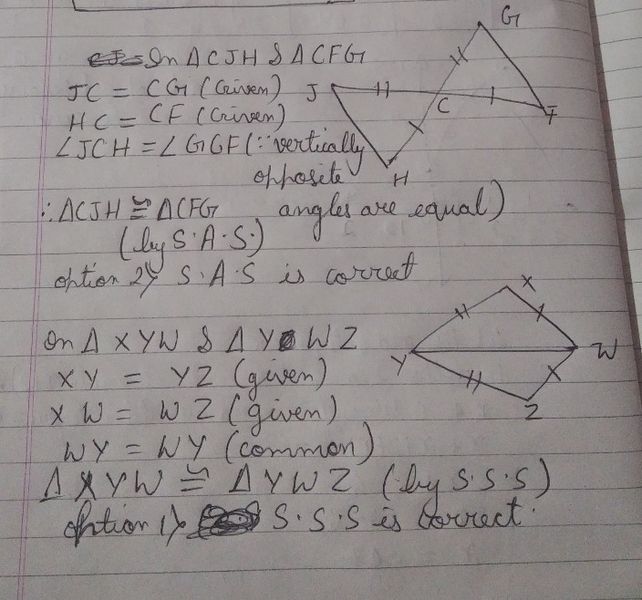 In Δ CJH & Δ CFG
JC = CG (Given)
HC = CF (Given)
∠JCH = ∠GCF (∵ vertically
opposite
angles are equal)
∴ ΔCJH ≅ ΔCFG
(by S.A.S.)
option 2) S.A.S is correct
G
J
C
F
H
In Δ XYW & Δ Y WZ
XY = YZ (given)
XW = WZ (given)
WY = WY (common)
Δ XYW ≅ Δ YWZ (by S.S.S)
option 1) S.S.S is correct.
X
Y
W
Z